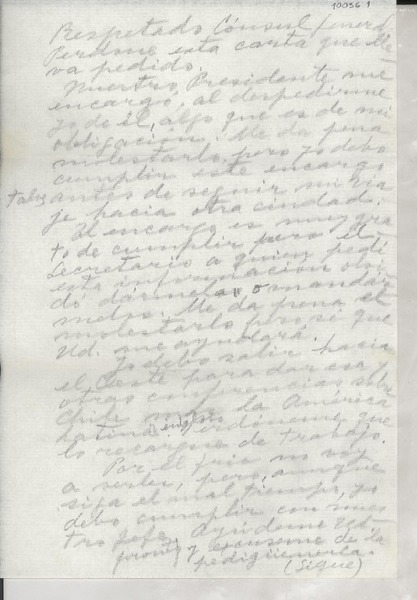 10056 1
Respetado Cónsul General:
Perdone esta carta que lle
va pedido.
Nuestro Presidente me
encargó, al despedirme
yo de él, algo que es de mi
obligación. Me da pena
molestarlo, pero yo debo
cumplir este encargo
tales antes de seguir mi via
je hacia otra ciudad.
El encargo es muy gra
to de cumplir pero el
Secretario a quien pedí
esta información olvi
dó dármela o mandár
mela. Me da pena el
molestarlo pero sé que
Ud. me ayudará.
Yo debo salir hacia
el Oeste para dar esa y
otras conferencias sobre
Chile la América
Latina. Perdóneme que
lo recargue de trabajo.
Por el frío no voy
a verles, pero, aunque
siga el mal tiempo, yo
debo cumplir con nues
tro Jefe. Ayúdeme Ud.
pronto y excúseme de la
pedigüeñería.
(Sigue)